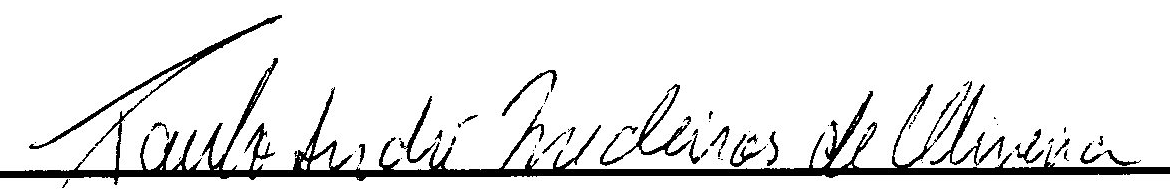 Paulo André Medeiros de Oliveira